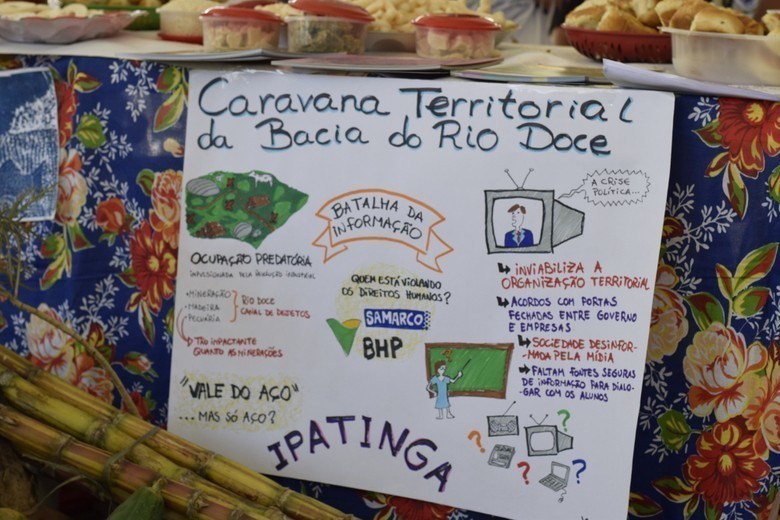 Caravana Territorial
da Bacia do Rio Doce
OCUPAÇÃO PREDATÓRIA
IMPULSIONADA PELA PRODUÇÃO INDUSTRIAL
• MINERAÇÃO
• MADEIRA
• PECUÁRIA
RIO DOCE
CANAL DE DEJETOS
TÃO IMPACTANTE
QUANTO AS MINERAÇÕES
"VALE DO AÇO"
... MAS SÓ AÇO?
BATALHA DA
INFORMAÇÃO
QUEM ESTÁ VIOLANDO
OS DIREITOS HUMANOS?
SAMARCO
BHP
IPATINGA
A CRISE
POLÍTICA...
INVIABILIZA A
ORGANIZAÇÃO TERRITORIAL
ACORDOS COM PORTAS
FECHADAS ENTRE GOVERNO
E EMPRESAS
SOCIEDADE DESINFOR-
MADA PELA MÍDIA
FALTAM FONTES SEGURAS
DE INFORMAÇÃO PARA DIALO-
GAR COM OS ALUNOS
? ? ? ?